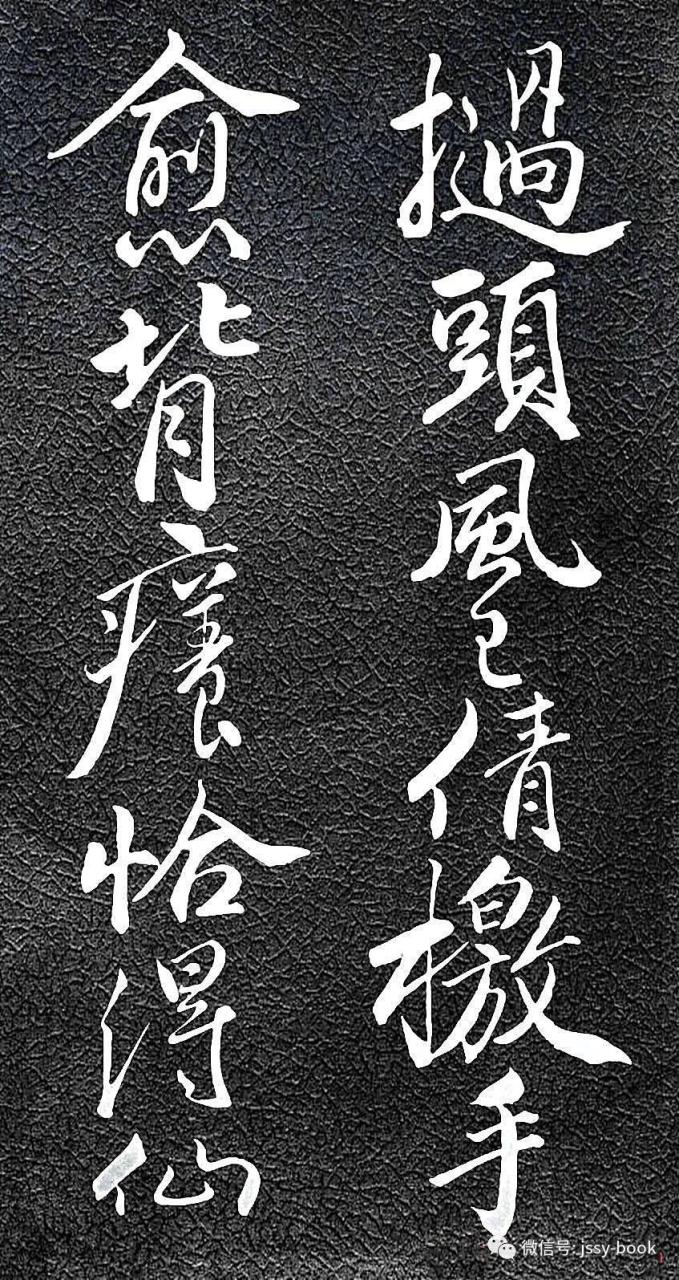 撾頭風已倩檄手
愈背癢恰得仙
微信号: jssy-book